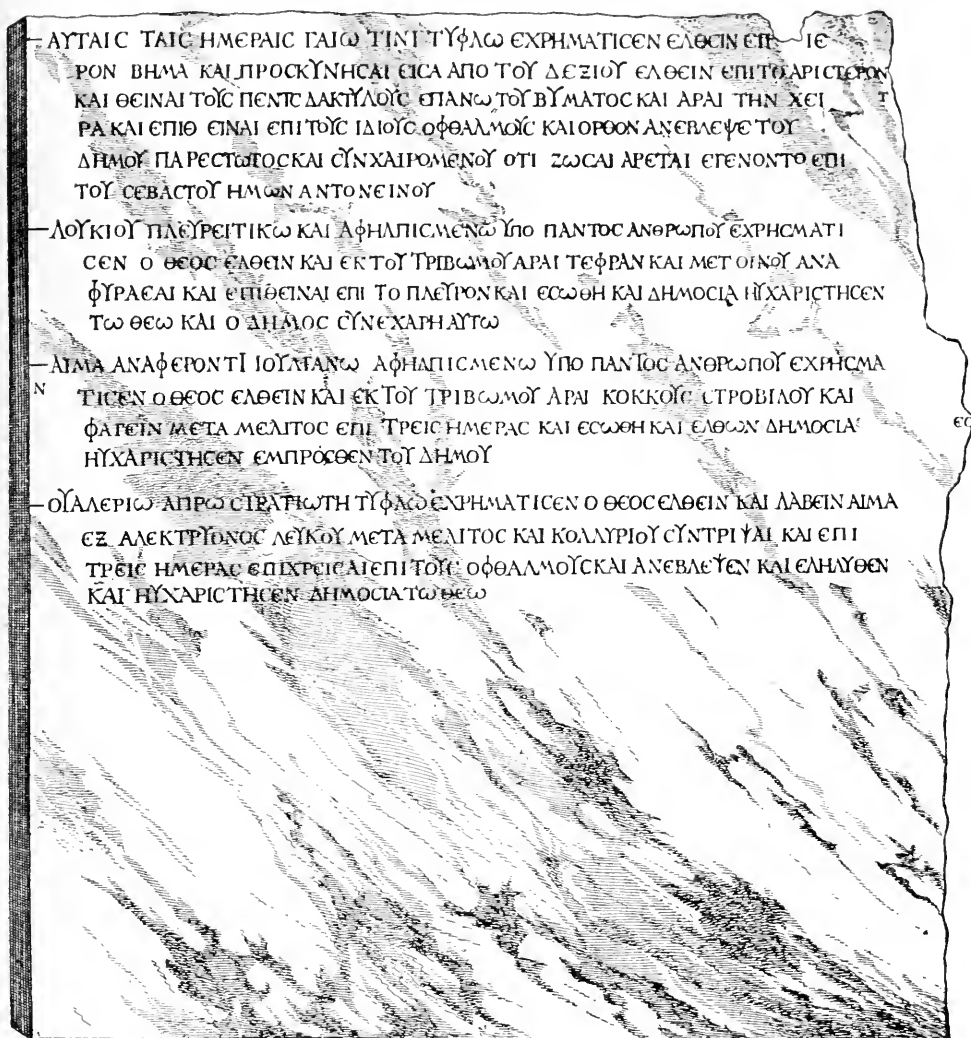 ΑΥΤΑΙϹ ΤΑΙϹ ΗΜΕΡΑΙϹ ΓΑΙΩ ΤΙΝΙ ΤΥΦΛΩ ΕΧΡΗΜΑΤΙϹΕΝ ΕΛΘΕΙΝ ΕΠ ΙΕ
ΡΟΝ ΒΗΜΑ ΚΑΙ ΠΡΟϹΚΥΝΗϹΑΙ ΕΙϹΑ ΑΠΟ ΤΟΥ ΔΕΞΙΟΥ ΕΛΘΕΙΝ ΕΠΙ ΤΟ ΑΡΙϹΤΕΡΟΝ
ΚΑΙ ΘΕΙΝΑΙ ΤΟΥϹ ΠΕΝΤϹ ΔΑΚΤΥΛΟΥϹ ΕΠΑΝΩ ΤΟΥ ΒΥΜΑΤΟϹ ΚΑΙ ΑΡΑΙ ΤΗΝ ΧΕΙ Τ
ΡΑ ΚΑΙ ΕΠΙΘ ΕΙΝΑΙ ΕΠΙ ΤΟΥϹ ΙΔΙΟΥϹ ΟΦΘΑΛΜΟΥϹ ΚΑΙ ΟΡΘΟΝ ΑΝΕΒΛΕΨΕ ΤΟΥ
ΔΗΜΟΥ ΠΑΡΕϹΤΩΤΟϹ ΚΑΙ ϹΥΝΧΑΙΡΟΜΕΝΟΥ ΟΤΙ ΖΩϹΑΙ ΑΡΕΤΑΙ ΕΓΕΝΟΝΤΟ ΕΠΙ
ΤΟΥ ϹΕΒΑϹΤΟΥ ΗΜΩΝ ΑΝΤΟΝΕΙΝΟΥ
ΛΟΥΚΙΟΥ ΠΛΕΥΡΕΙΤΙΚΩ ΚΑΙ ΑΦΗΛΠΙϹΜΕΝΩ ΥΠΟ ΠΑΝΤΟϹ ΑΝΘΡΩΠΟΥ ΕΧΡΗϹΜΑΤΙ
ϹΕΝ Ο ΘΕΟϹ ΕΛΘΕΙΝ ΚΑΙ ΕΚ ΤΟΥ ΤΡΙΒΩΜΟΥ ΑΡΑΙ ΤΕΦΡΑΝ ΚΑΙ ΜΕΤ ΟΙΝΟΥ ΑΝΑ
ΦΥΡΑΕΑΙ ΚΑΙ ΕΠΙΘΕΙΝΑΙ ΕΠΙ ΤΟ ΠΛΕΥΡΟΝ ΚΑΙ ΕϹΩΘΗ ΚΑΙ ΔΗΜΟϹΙΑ ΗΥΧΑΡΙϹΤΗϹΕΝ
ΤΩ ΘΕΩ ΚΑΙ Ο ΔΗΜΟϹ ϹΥΝΕΧΑΡΗ ΑΥΤΩ
ΑΙΜΑ ΑΝΑΦΕΡΟΝΤΙ ΙΟΥΛΙΑΝΩ ΑΦΗΛΠΙϹΜΕΝΩ ΥΠΟ ΠΑΝΤΟϹ ΑΝΘΡΩΠΟΥ ΕΧΡΗϹΜΑ
Ν ΤΙϹΕΝ Ο ΘΕΟϹ ΕΛΘΕΙΝ ΚΑΙ ΕΚ ΤΟΥ ΤΡΙΒΩΜΟΥ ΑΡΑΙ ΚΟΚΚΟΥϹ ϹΤΡΟΒΙΛΟΥ ΚΑΙ
ΦΑΓΕΙΝ ΜΕΤΑ ΜΕΛΙΤΟϹ ΕΠΙ ΤΡΕΙϹ ΗΜΕΡΑϹ ΚΑΙ ΕϹΩΘΗ ΚΑΙ ΕΛΘΩΝ ΔΗΜΟϹΙΑ ΕϹ
ΗΥΧΑΡΙϹΤΗϹΕΝ ΕΜΠΡΟϹΘΕΝ ΤΟΥ ΔΗΜΟΥ
ΟΥΑΛΕΡΙΩ ΑΠΡΩ ϹΤΡΑΤΙΩΤΗ ΤΥΦΛΩ ΕΧΡΗΜΑΤΙϹΕΝ Ο ΘΕΟϹ ΕΛΘΕΙΝ ΚΑΙ ΛΑΒΕΙΝ ΑΙΜΑ
ΕΞ ΑΛΕΚΤΡΥΟΝΟϹ ΛΕΥΚΟΥ ΜΕΤΑ ΜΕΛΙΤΟϹ ΚΑΙ ΚΟΛΛΥΡΙΟΥ ϹΥΝΤΡΙΨΑΙ ΚΑΙ ΕΠΙ
ΤΡΕΙϹ ΗΜΕΡΑϹ ΕΠΙΧΡΕΙϹΑΙ ΕΠΙ ΤΟΥϹ ΟΦΘΑΛΜΟΥϹ ΚΑΙ ΑΝΕΒΛΕΨΕΝ ΚΑΙ ΕΛΗΛΥΘΕΝ
ΚΑΙ ΗΥΧΑΡΙϹΤΗϹΕΝ ΔΗΜΟϹΙΑ ΤΩ ΘΕΩ